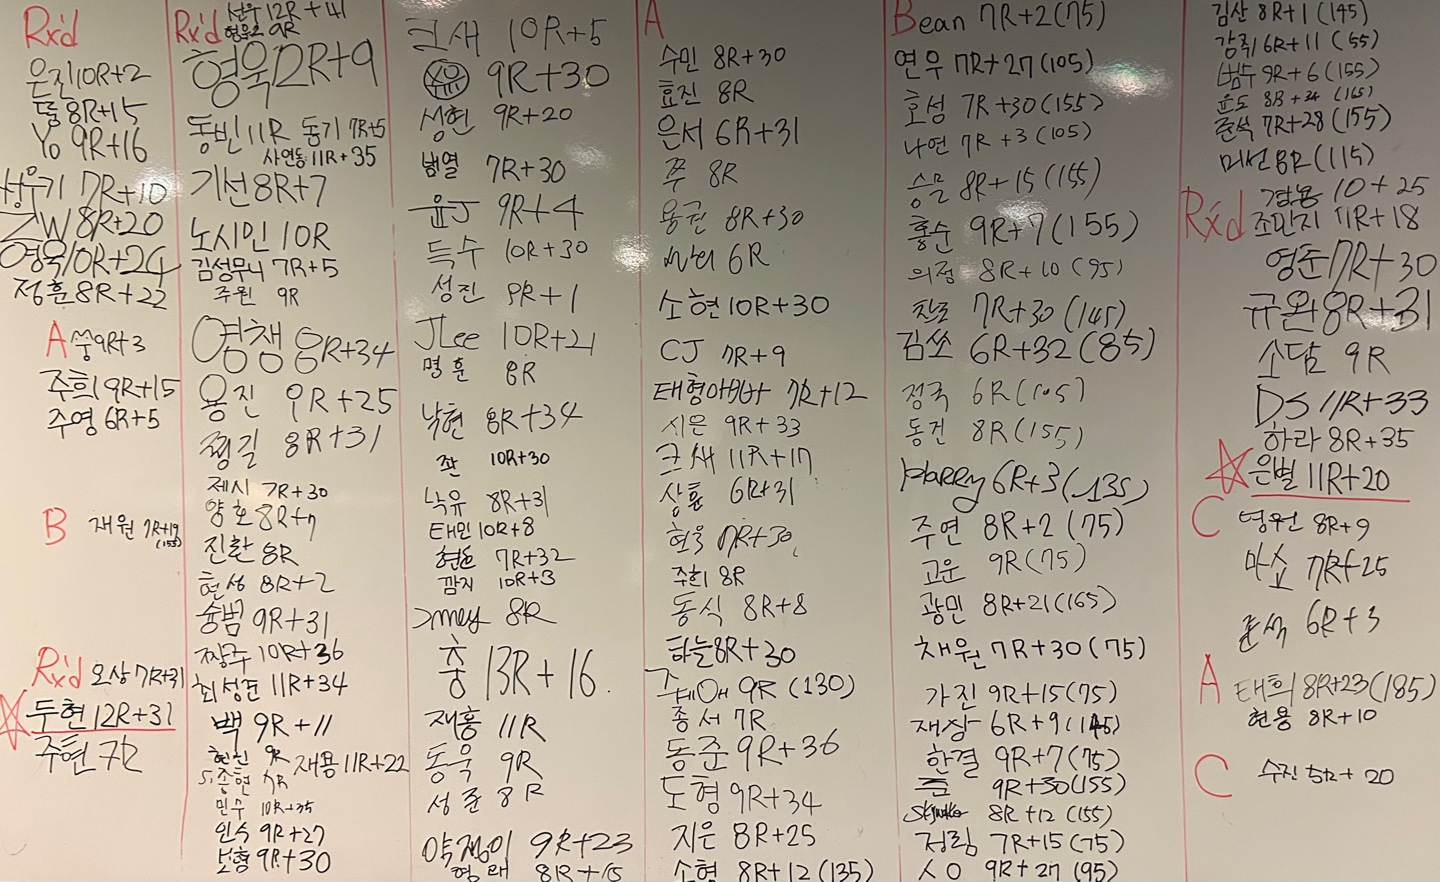 Rx'd
은진 10R+2
뚱 8R+15
Yo 9R+16
7R+10
JW 8R+20
영욱 10R+24
정훈 8R+22
A 쑹 9R+3
주희 9R+15
주영 6R+5
B 재원 7R+19
(155)
Rx'd 오상 7R+31
두현 12R+31
주현 7R
Rx'd 선우 12R+41
9R
형욱 12R+9
동빈 11R 동기 7R+5
사연동 11R+35
기선 8R+7
노시민 10R
김성무니 7R+5
주원 9R
영챙 8R+34
용진 9R+25
평길 8R+31
제시 7R+30
양호 8R+7
진환 8R
현성 8R+2
슝범 9R+31
짱주 10R+36
최성준 11R+34
백 9R+11
9R 재용 11R+22
민수 10R+35
인수 9R+27
보형 9R+30
크새 10R+5
9R+30
성현 9R+20
병열 7R+30
윤J 9R+4
득수 10R+30
성진 9R+1
JLee 10R+21
명훈 8R
낙현 8R+34
10R+30
낙유 8R+31
태민 10R+8
7R+32
깜지 10R+3
8R
충 13R+16
재홍 11R
동욱 9R
성준 8R
약쟁이 9R+23
형래 8R+15
A
수민 8R+30
효진 8R
은서 6R+31
쭈 8R
용권 8R+30
6R
소현 10R+30
CJ 7R+9
태형아빠 7R+12
시은 9R+33
크새 11R+17
상훈 6R+31
현욱 7R+30
주희 8R
동식 8R+8
하늘 8R+30
9R (130)
종서 7R
동준 9R+36
도형 9R+34
지은 8R+25
소형 8R+12 (135)
Bean 7R+2 (75)
연우 7R+27 (105)
호성 7R+30 (155)
나연 7R+3 (105)
승믈 8R+15 (155)
홍순 9R+7 (155)
의정 8R+10 (95)
찬호 7R+30 (145)
김쏘 6R+32 (85)
정국 6R (105)
동건 8R (155)
Harry 6R+3 (135)
주연 8R+2 (75)
고운 9R (75)
광민 8R+21 (165)
채원 7R+30 (75)
가진 9R+15 (75)
재상 6R+9 (145)
한결 9R+7 (75)
준 9R+30 (155)
8R+12 (155)
정림 7R+15 (75)
9R+27 (95)
김산 8R+1 (145)
감쥐 6R+11 (55)
범수 9R+6 (155)
윤도 8R+34 (165)
준석 7R+28 (155)
미선 8R (115)
10+25
Rx'd 조민지 11R+18
영준 7R+30
규완 8R+31
소담 9R
DS 11R+33
하라 8R+35
은별 11R+20
C 영원 8R+9
마쇼 7R+25
준석 6R+3
A 태희 8R+23 (185)
현용 8R+10
C 수진 5R+20